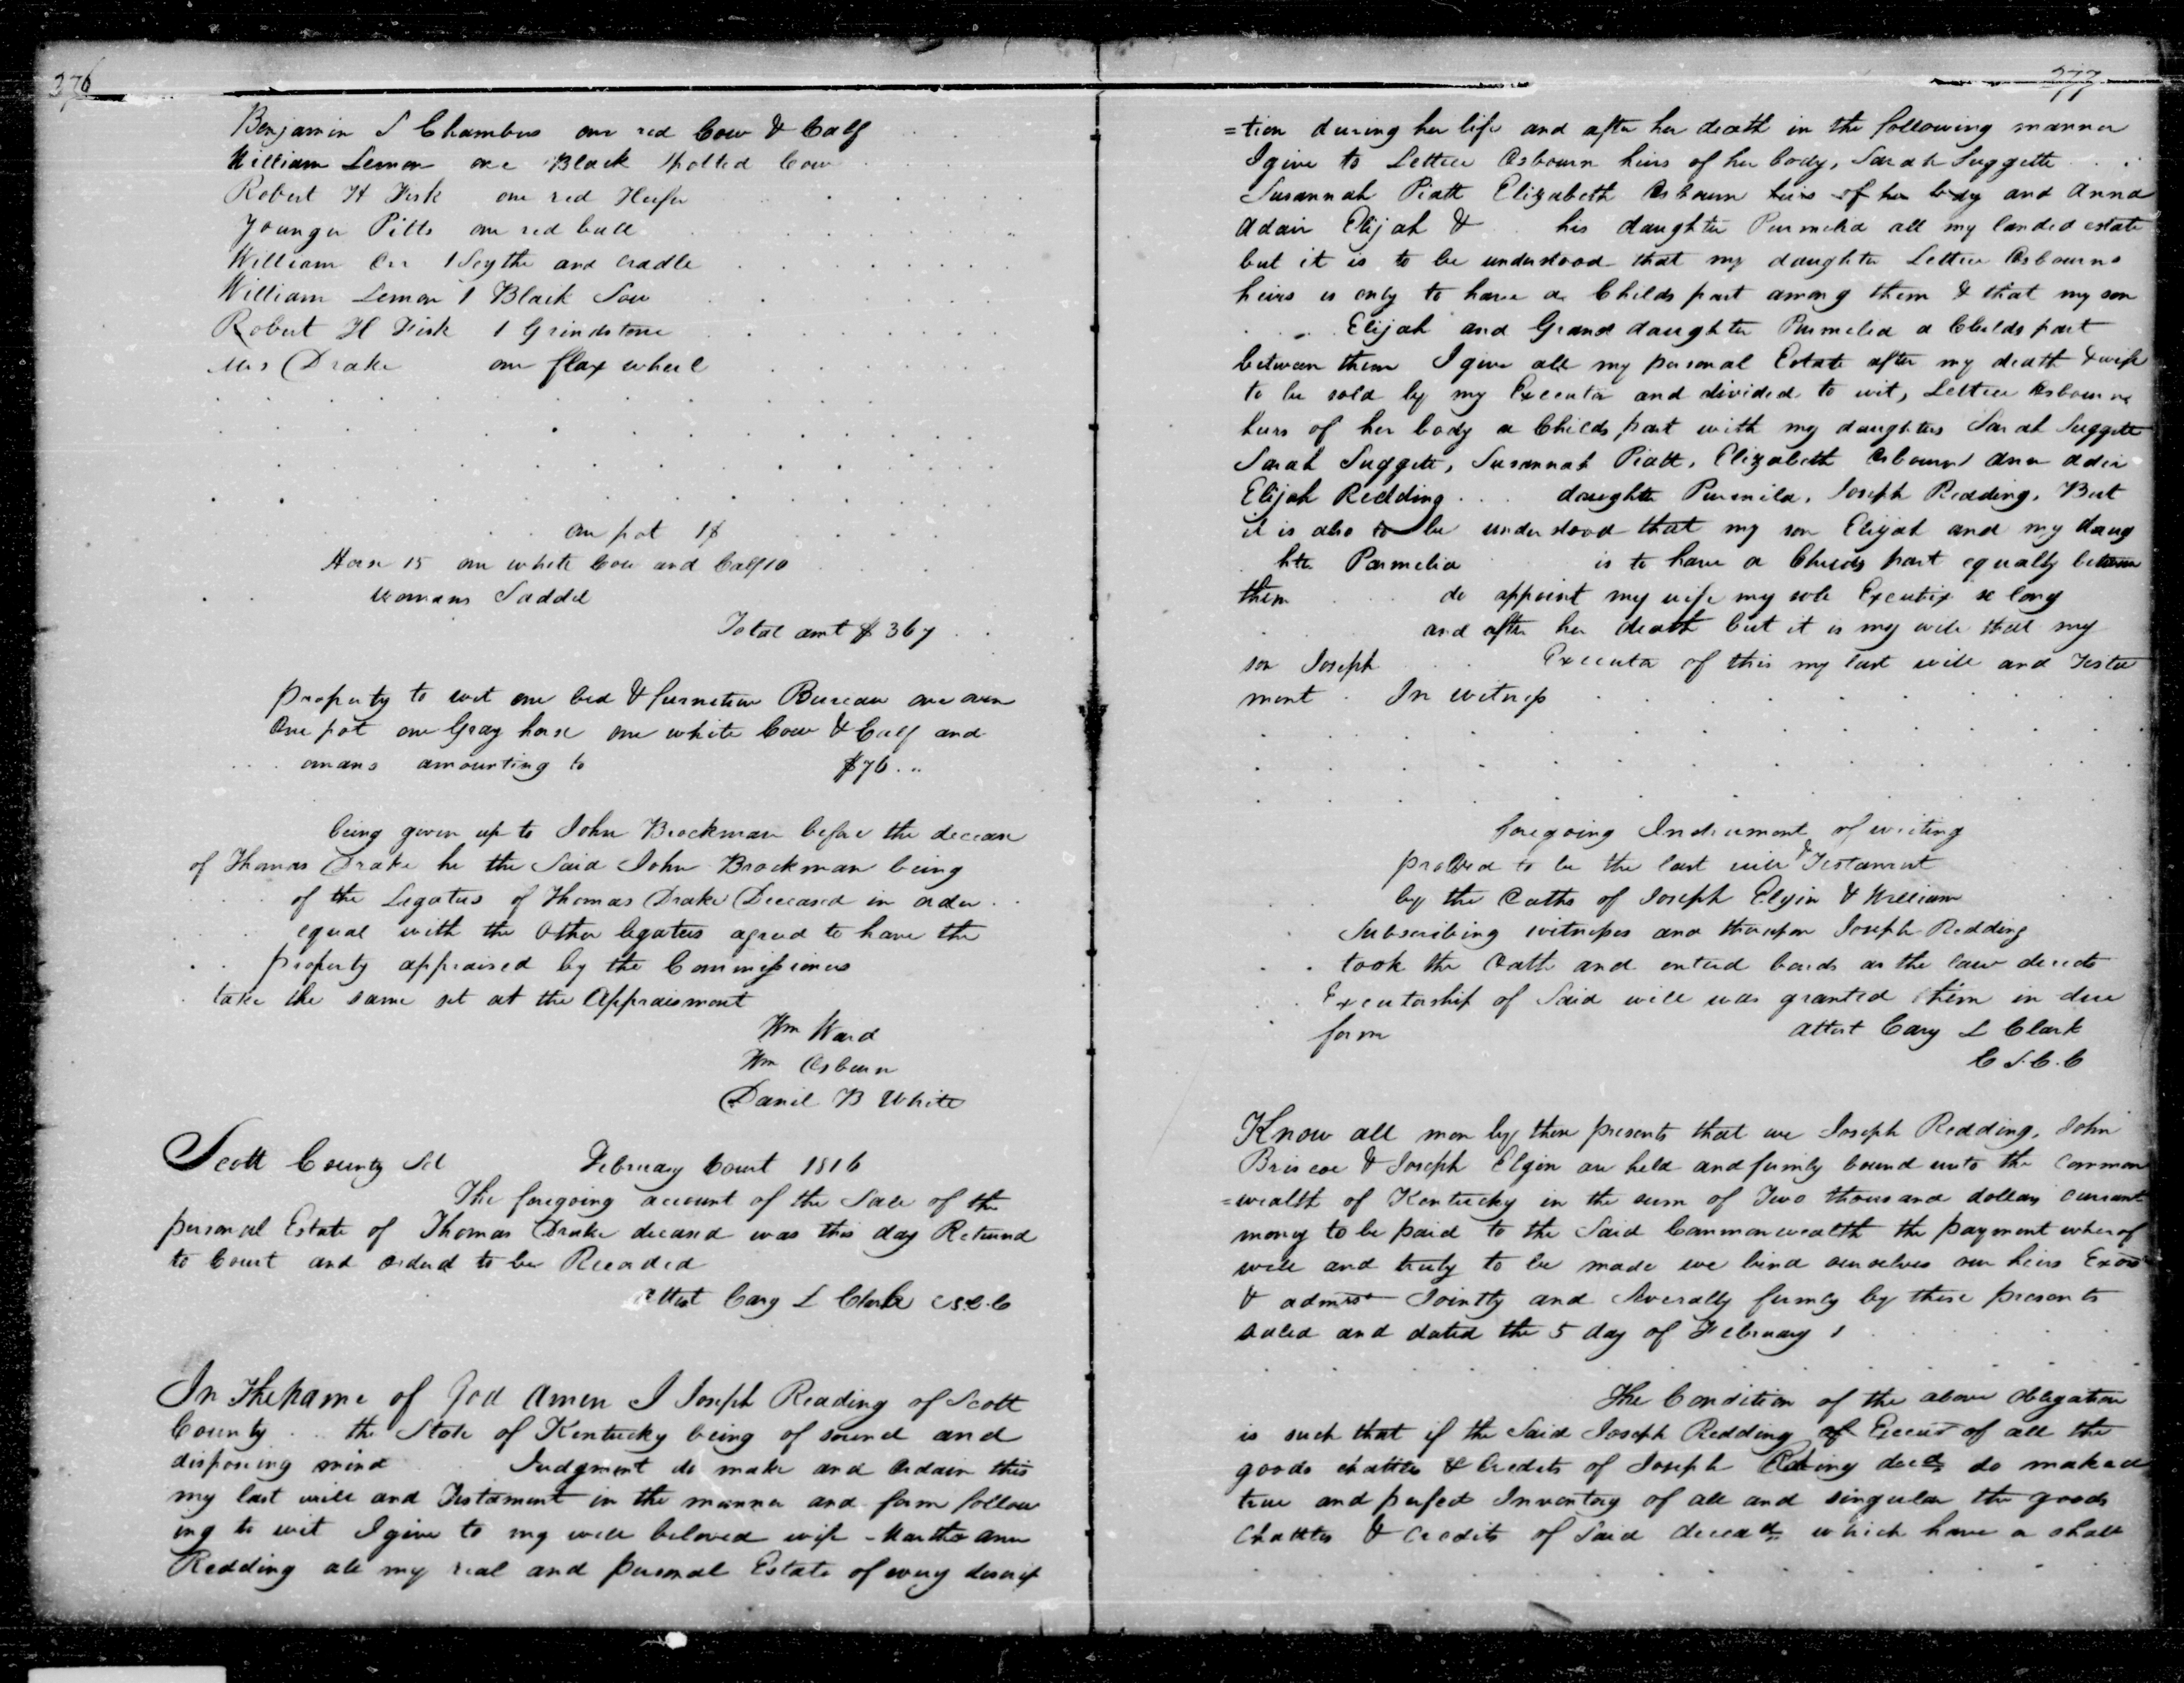 376
Benjamin S Chambers one red Cow & Calf
William Lemon one Black Spotted Cow
Robert H Fisk one red Heifer
Younger Pitts one red bull
William Orr 1 Scythe and Cradle
William Lemon 1 Black Sow
Robert H Fisk 1 Grindstone
Mrs Drake one flax wheel
one pot 1$
Horse 15 one white Cow and Calf 10
womans Saddel
Total amt $ 367
property to wit one bed & furniture Bureau one oven
One pot one Gray horse one white Cow & Calf and
omans amounting to $76
being given up to John Brockman before the decease
of Thomas Drake he the Said John Brockman being
of the Legatees of Thomas Drake Deceased in order
equal with the Other legatees agreed to have the
property appraised by the Commissioners
take the same set at the Appraisment
Wm Ward
Wm Osburn
Daniel B White
Scott County Sct February Court 1816
The foregoing account of the Sale of the
personal Estate of Thomas Drake deceasd was this day Returned
to Court and ordered to be Recorded
Attest Cary L Clarke C S.C.C
In The name of God Amen I Joseph Reading of Scott
County the State of Kentucky being of sound and
disposing mind Judgment do make and Ordain this
my last will and Testament in the manner and form follow
ing to wit I give to my well beloved wife Martha ann
Redding all my real and personal Estate of every descrip
377
=tion during her life and after her death in the following manner
I give to Lettice Osbourn heirs of her body, Sarah Suggette
Susannah Piatt Elizabeth Osbourn heirs of her body and Anna
Adair Elijah & his daughter Permelia all my landed estate
but it is to be understood that my daughter Lettice Osbourns
heirs is only to have a Childs part among them & that my son
Elijah and Grand daughter Permelia a Childs part
between them I give all my personal Estate after my death & wife
to be sold by my Executor and divided to wit, Lettice Osbourns
heirs of her body a Childs part with my daughters Sarah Suggett
Sarah Suggett, Susannah Piatt, Elizabeth Osbourn Ann Adair
Elijah Redding daughter Permila, Joseph Redding, But
it is also to be understood that my son Elijah and my daug
hter Parmelia is to have a Childs part equally between
them do appoint my wife my sole Exeutrix so long
and after her death but it is my will that my
son Joseph Executor of this my last will and Testa
ment In witness
foregoing Instrument of writing
proved to be the last will & Testament
by the Oaths of Joseph Elgin & William
Subscribing witnesses and thereupon Joseph Redding
took the Oath and entered bonds as the law directs
Executorship of Said will was granted him in due
form Attest Cary L Clark
C S.C.C
Know all men by these presents that we Joseph Redding, John
Briscoe & Joseph Elgin are held and firmly bound unto the Common
=wealth of Kentucky in the sum of Two thousand dollars currant
money to be paid to the Said Commonwealth the payment wherof
well and truly to be made we bind ourselves our heirs Exors
& admrs Jointly and Severally firmly by these presents
sealed and dated the 5 day of February 1
The Condition of the above Obligation
is such that if the Said Joseph Redding of all the
goods chattles & Credits of Joseph decd do make a
true and perfect Inventory of all and singular the goods
Chattles & Credits of Said which have or shall